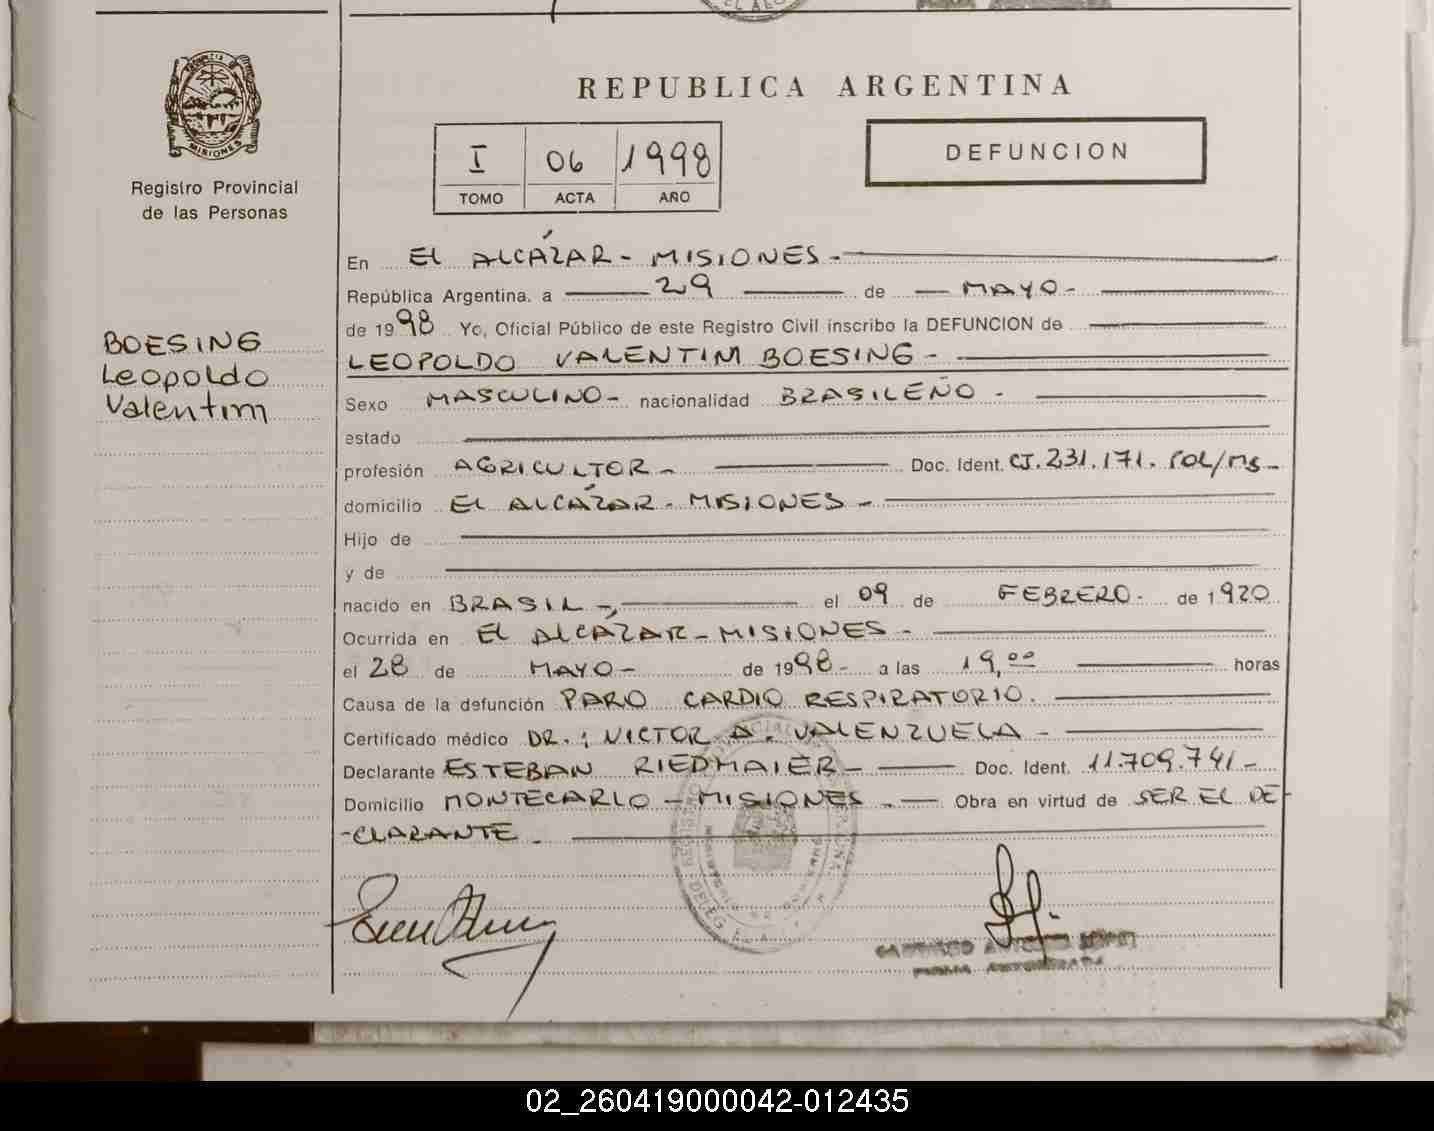 REPUBLICA ARGENTINA
PROVINCIA DE
MISIONES
Registro Provincial
de las Personas
I 06 1998
TOMO ACTA AÑO
DEFUNCION
En EL ALCÁZAR - MISIONES -
República Argentina, a 29 de MAYO -
de 1998 Yo, Oficial Público de este Registro Civil inscribo la DEFUNCION de
BOESING
Leopoldo
Valentim
LEOPOLDO VALENTIM BOESING -
Sexo MASCULINO - nacionalidad BRASILEÑO -
estado
profesión AGRICULTOR - Doc. Ident. CI. 231.171. POL/MS -
domicilio EL ALCÁZAR - MISIONES -
Hijo de
y de
nacido en BRASIL -, el 09 de FEBRERO - de 1920
Ocurrida en EL ALCÁZAR - MISIONES -
el 28 de MAYO - de 1998 - a las 19,00 horas
Causa de la defunción PARO CARDIO RESPIRATORIO.
Certificado médico DR.: VICTOR A. VALENZUELA -
Declarante ESTEBAN RIEDMAIER - Doc. Ident. 11.709.741 -
Domicilio MONTECARLO - MISIONES - Obra en virtud de SER EL DE-
-CLARANTE.
02_260419000042-012435